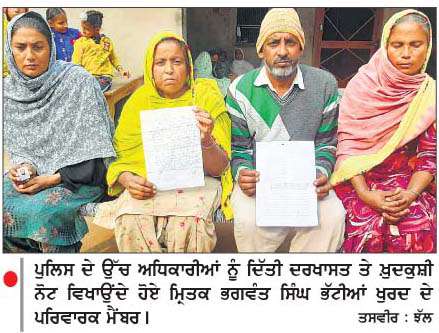 ਪੁਲਿਸ ਦੇ ਉੱਚ ਅਧਿਕਾਰੀਆਂ ਨੂੰ ਦਿੱਤੀ ਦਰਖਾਸਤ ਤੇ ਖ਼ੁਦਕੁਸ਼ੀ
ਨੋਟ ਵਿਖਾਉਂਦੇ ਹੋਏ ਮ੍ਰਿਤਕ ਭਗਵੰਤ ਸਿੰਘ ਭੱਟੀਆਂ ਖੁਰਦ ਦੇ
ਪਰਿਵਾਰਕ ਮੈਂਬਰ। ਤਸਵੀਰ : ਝੱਲ